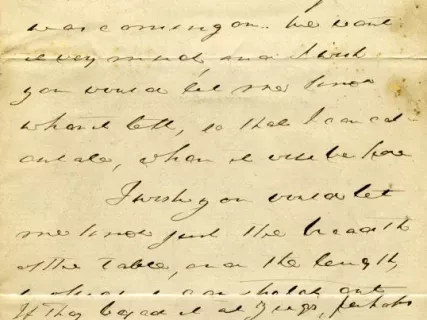 was coming on. We want
it very much, and I wish
you would let me know
when it left, so that I can cal-
culate, when it will be here
I wish you would let
me know just the breadth
of the Table, and the length,
I can sketch out
If they begin it at perhaps